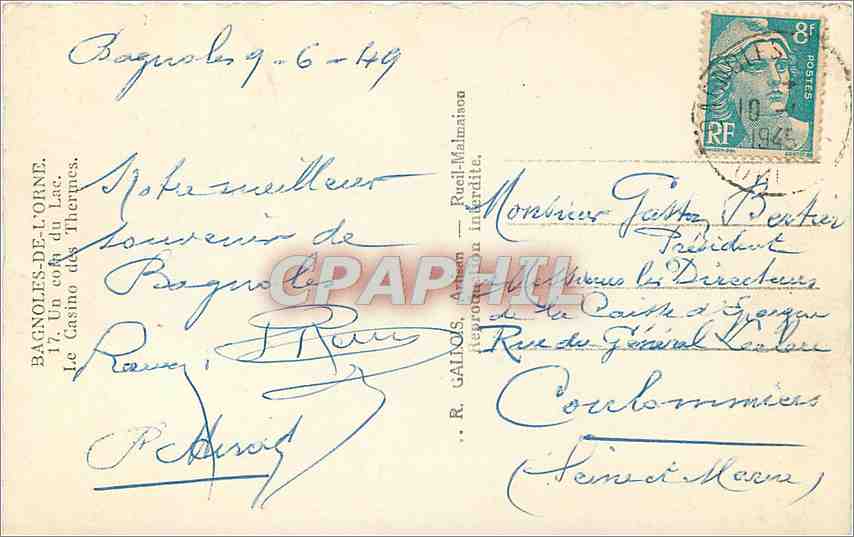 Bagnoles 9-6-49
Notre meilleur
souvenir de
Bagnoles
BAGNOLES-DE-L'ORNE.
17. Un coin du Lac.
Le Casino des Thermes.
R. GALLOIS, Artisan — Rueil-Malmaison
Reproduction interdite.
8F
POSTES
RF
BAGNOLES
10
Monsieur Gaston Bertier
Président
Messieurs les Directeurs
de la Caisse d'Epargne
Rue du Général Leclerc
Coulommiers
(Seine et Marne)
CPAPHIL